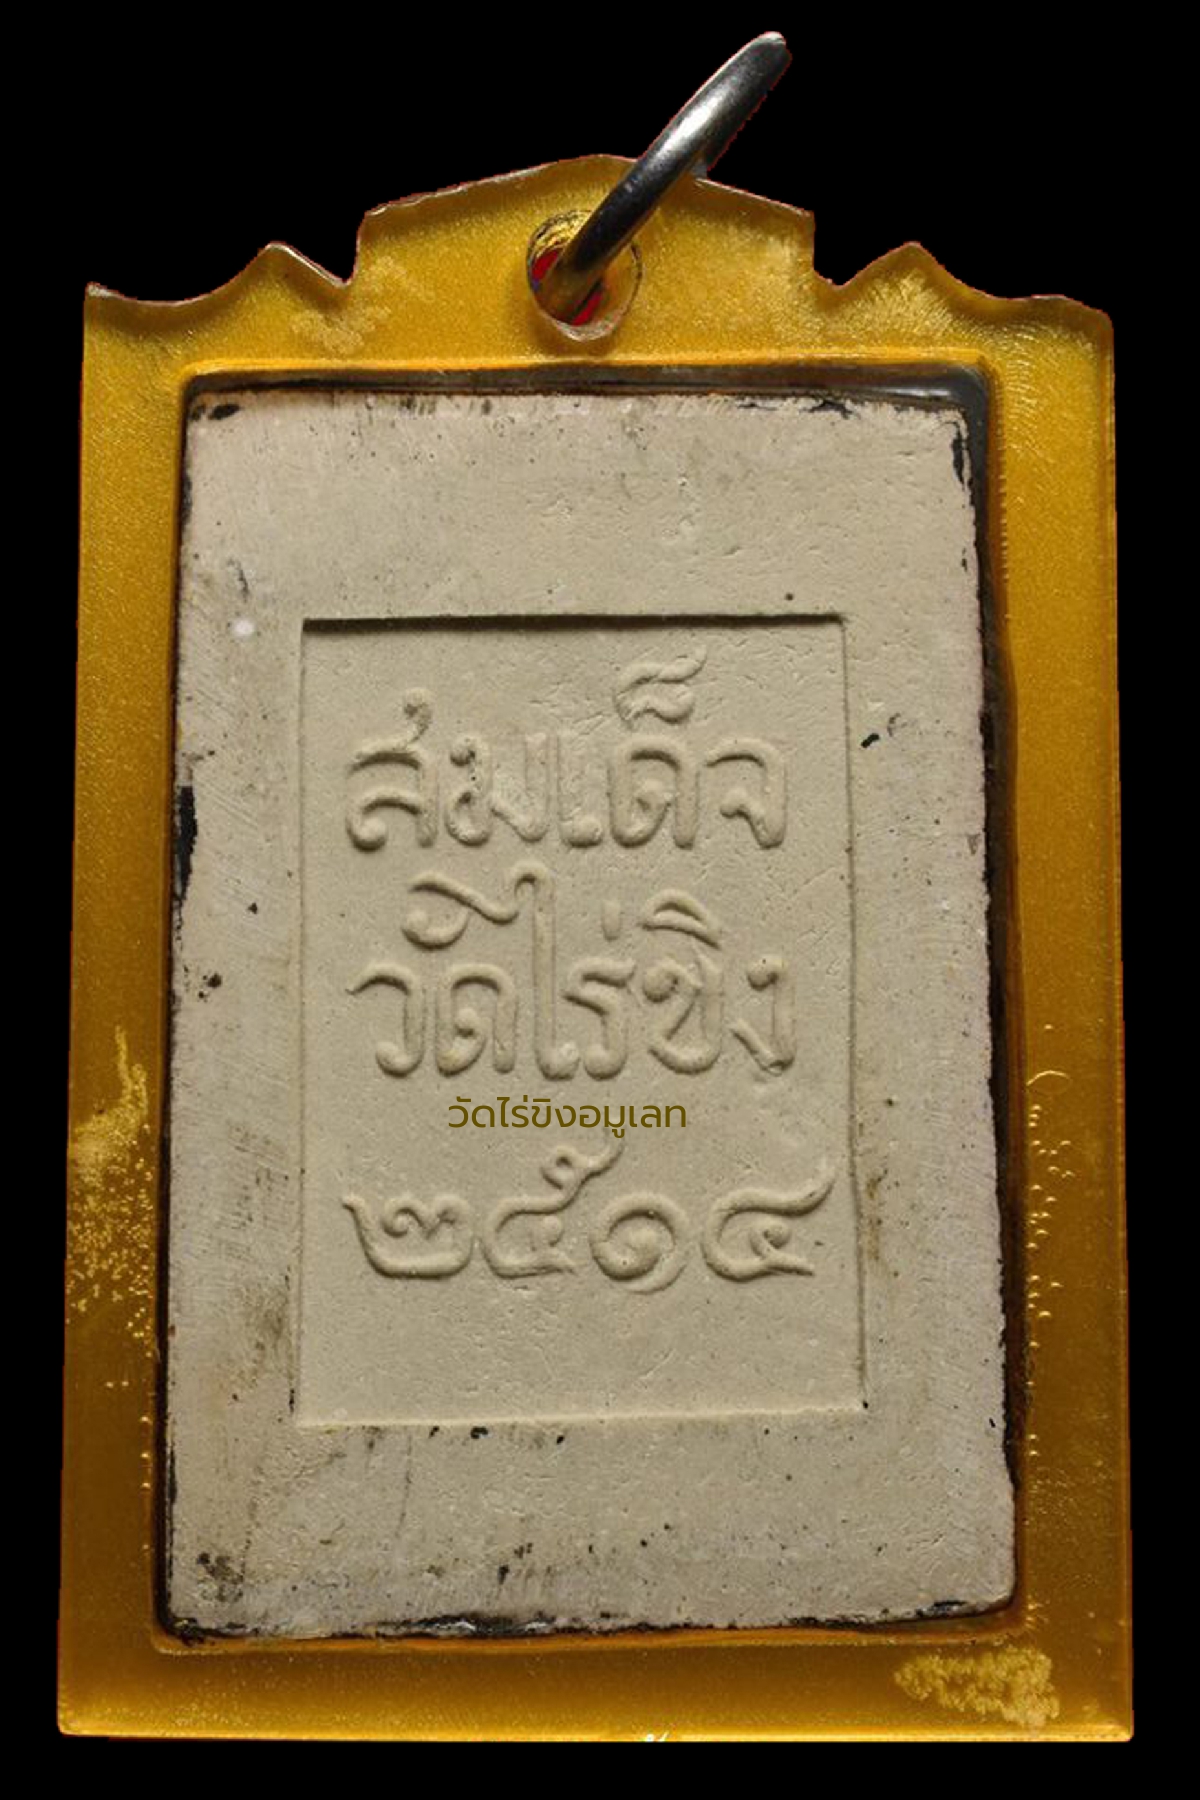 สมเด็จ
วัดไร่ขิง
วัดไร่ขิงอมูเลท
๒๕๑๔